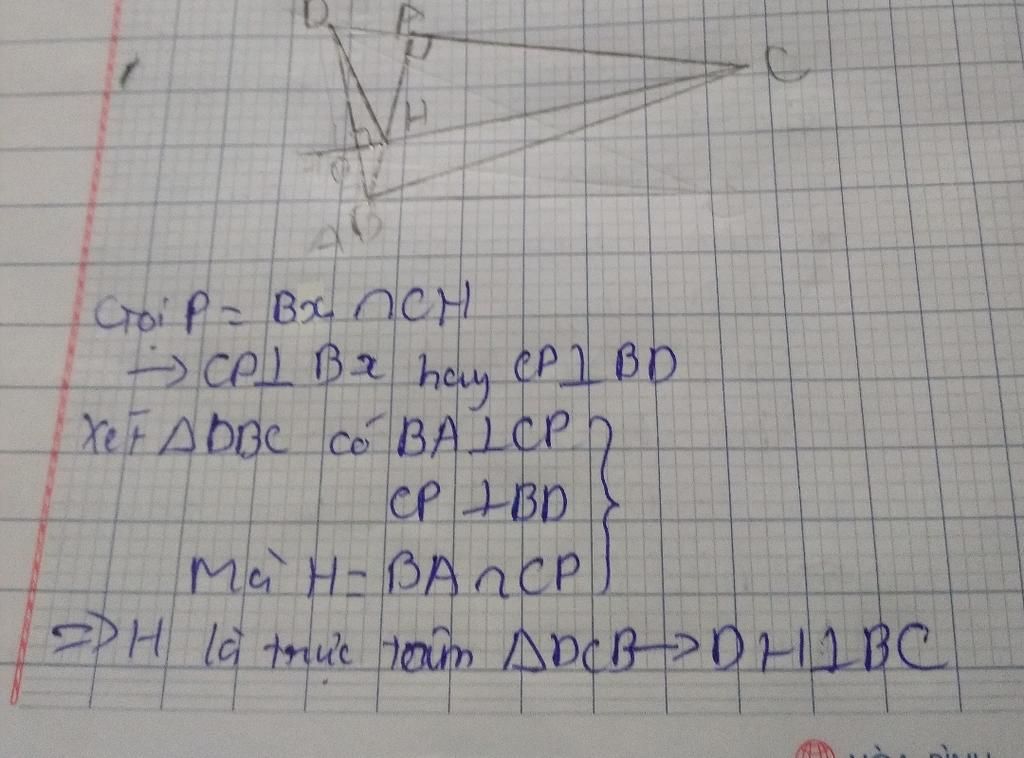 D
P
C
H
A
B
Gọi P = Bx ∩ CH
→ CP⊥ Bx hay CP⊥BD
Xét ΔDBC có BA⊥CP
CP ⊥BD
Mà H = BA∩CP
=> H là trực tâm ΔDCB → DH⊥BC